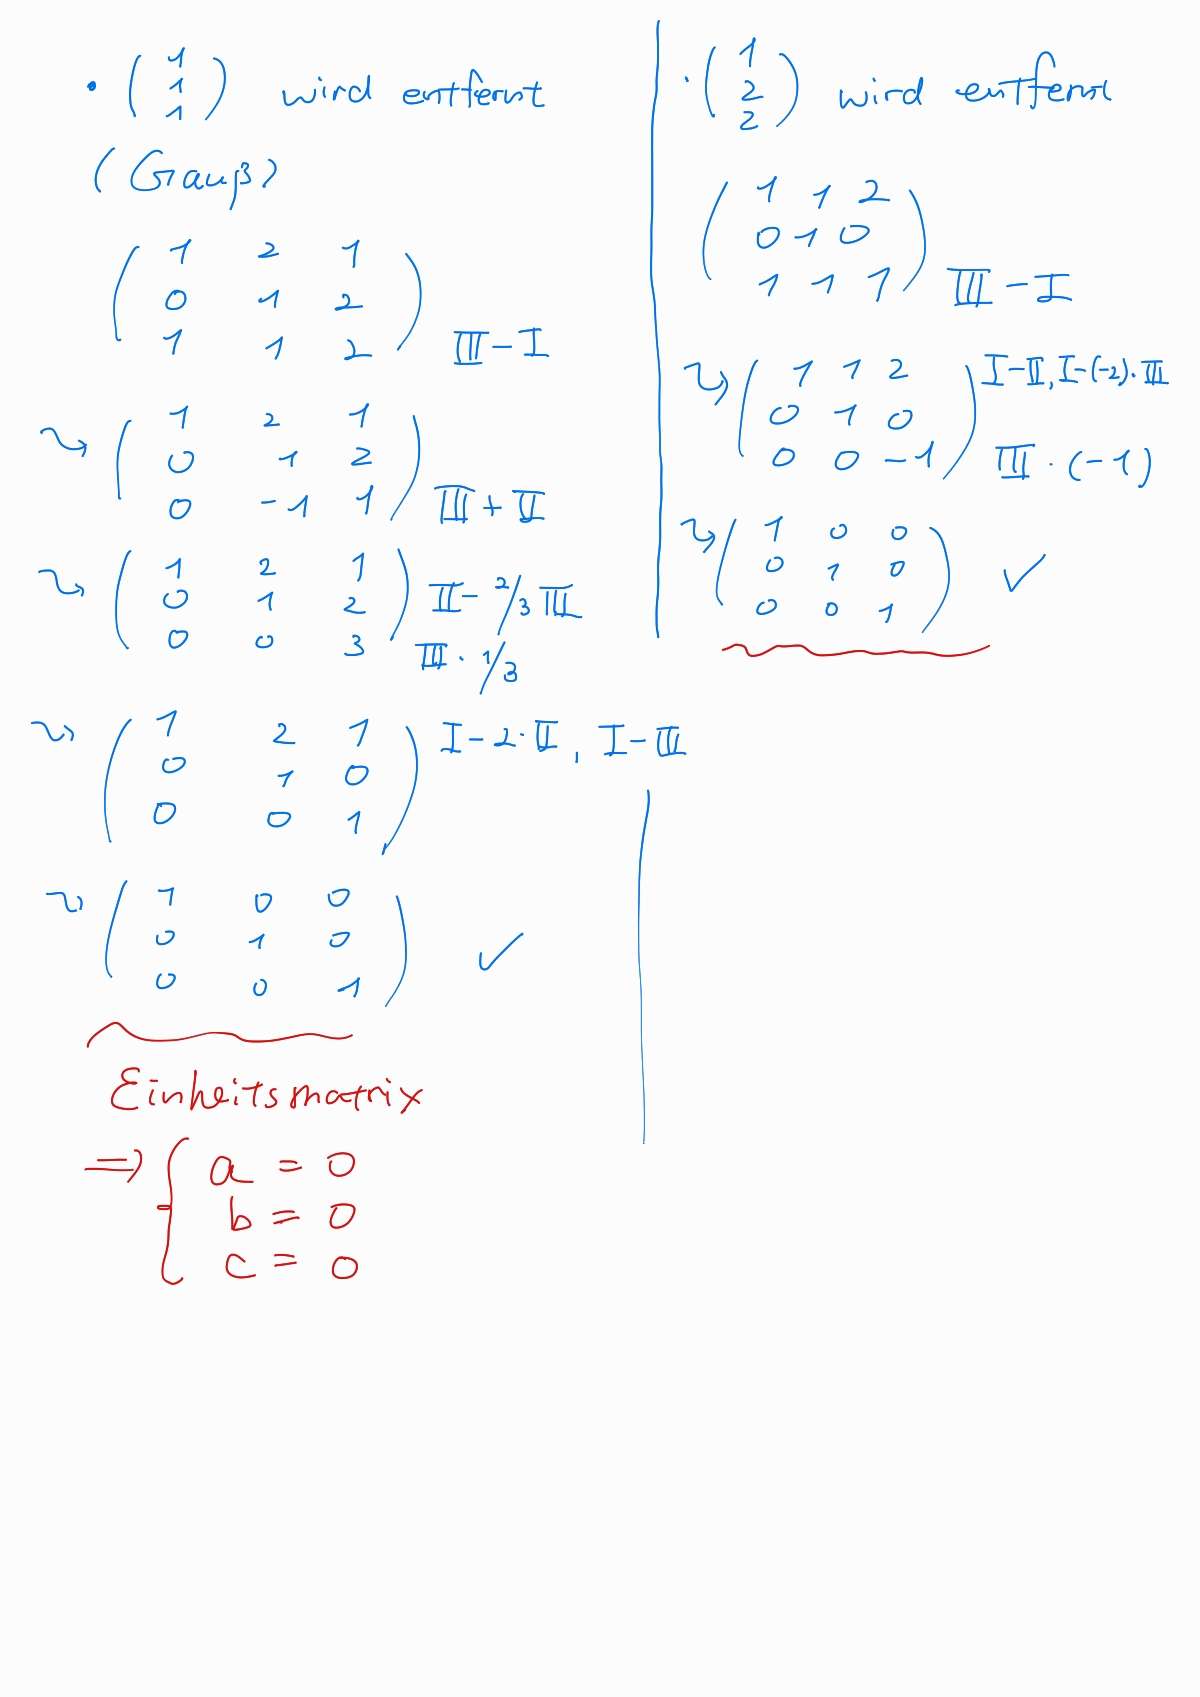 • (1 1 1) wird entfernt
(Gauß)
( 1 2 1
0 1 2
1 1 2 ) III - I
⇝ ( 1 2 1
0 1 2
0 -1 1 ) III + II
⇝ ( 1 2 1
0 1 2
0 0 3 ) II - 2/3 III
III · 1/3
⇝ ( 1 2 1
0 1 0
0 0 1 ) I - 2·II, I - III
⇝ ( 1 0 0
0 1 0
0 0 1 ) ✓
Einheitsmatrix
⇒ { a = 0
b = 0
c = 0
· (1 2 2) wird entfernt
( 1 1 2
0 1 0
1 1 1 ) III - I
⇝ ( 1 1 2
0 1 0
0 0 -1 ) I-II, I-(-2)·III
III · (-1)
⇝ ( 1 0 0
0 1 0
0 0 1 ) ✓